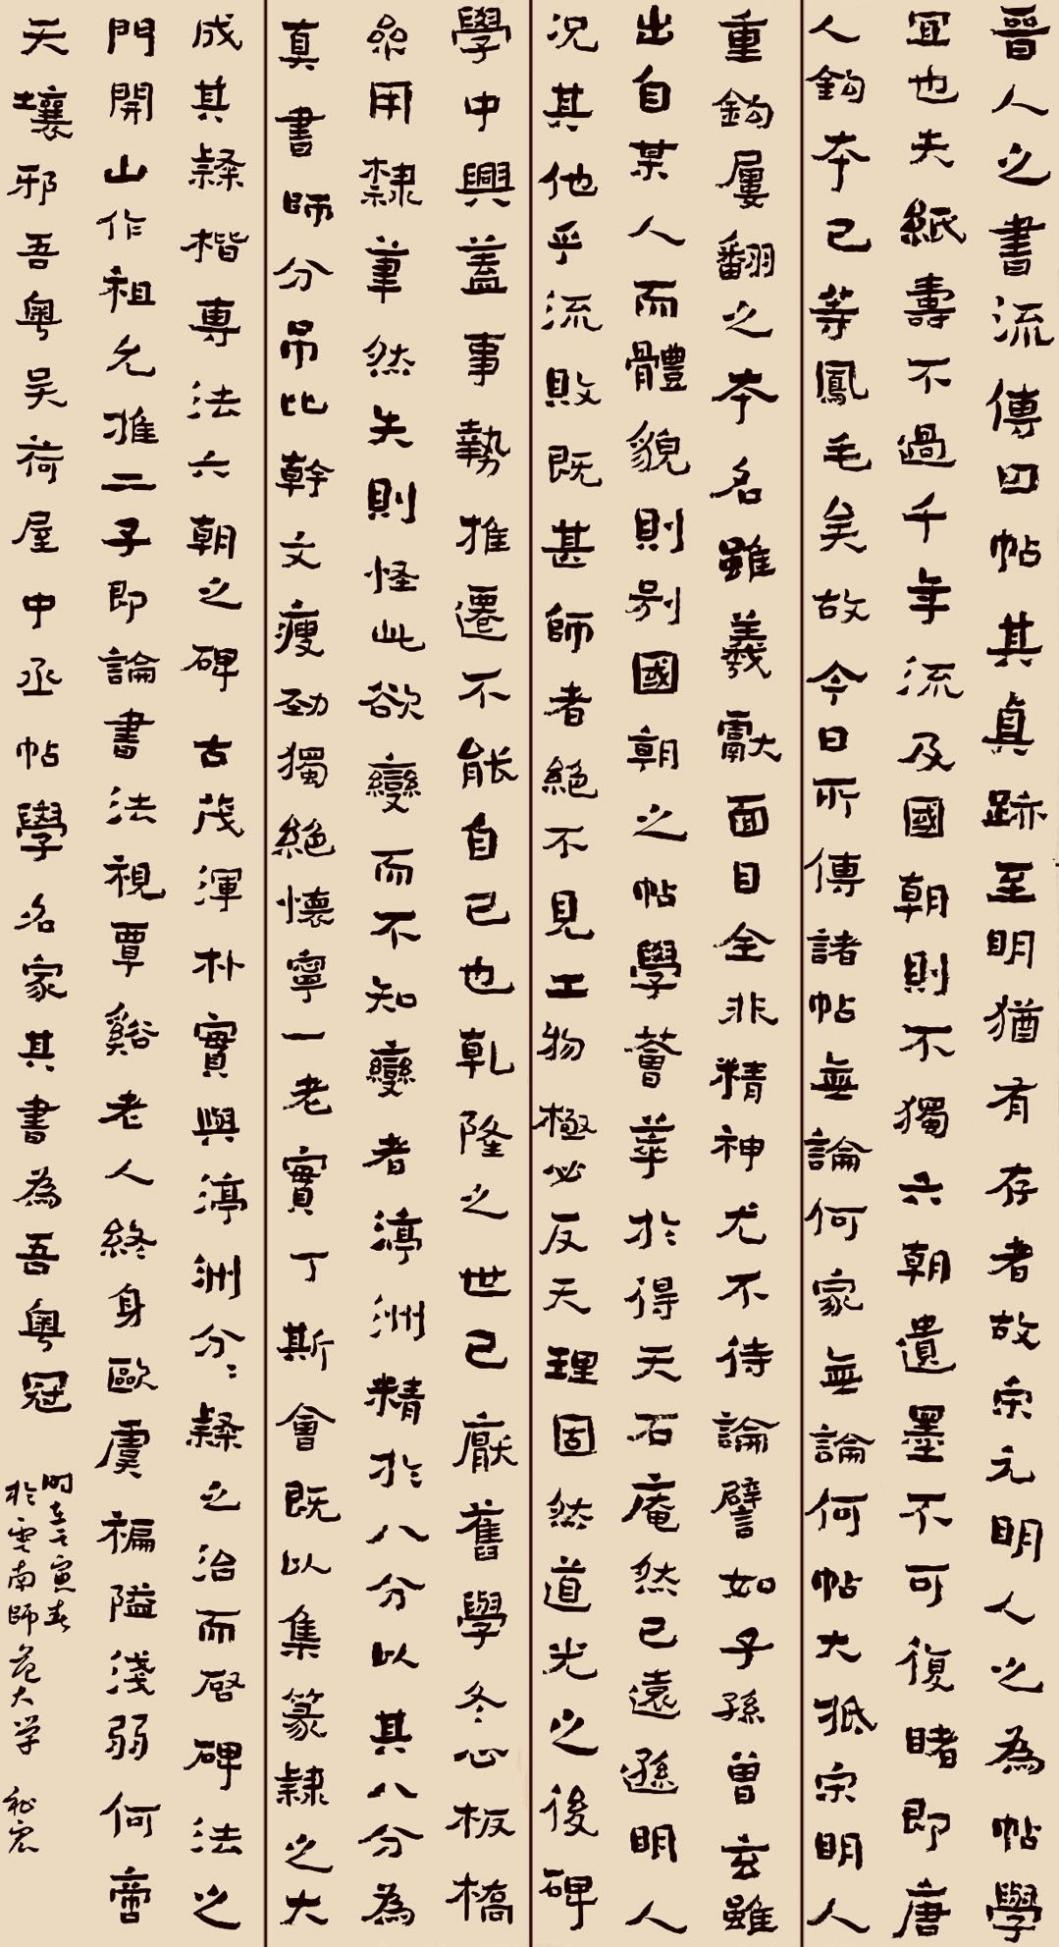 晉人之書流傳曰帖其真跡至明猶有存者故宋元明人之為帖學
宜也夫紙壽不過千年流及國朝則不獨六朝遺墨不可復睹即唐
人鈎本已等鳳毛矣故今日所傳諸帖無論何家無論何帖大抵宋明人
重鈎屢翻之本名雖羲獻面目全非精神尤不待論譬如子孫曾玄雖
出自某人而體貌則別國朝之帖學薈萃於得天石庵然已遠遜明人
況其他乎流敗既甚師者絕不見工物極必反天理固然道光之後碑
學中興蓋事勢推遷不能自已也乾隆之世已厭舊學冬心板橋
參用隸筆然失則怪此欲變而不知變者渟洲精於八分以其八分為
真書師分吊比幹文瘦勁獨絕懷寧一老實丁斯會既以集篆隸之大
成其隸楷專法六朝之碑古茂渾朴實與渟洲分〻隸之治而啓碑法之
門開山作祖允推二子即論書法視覃谿老人終身歐虞褊隘淺弱何啻
天壤邪吾粵吳荷屋中丞帖學名家其書為吾粵冠
时在壬寅春
於雲南師范大学